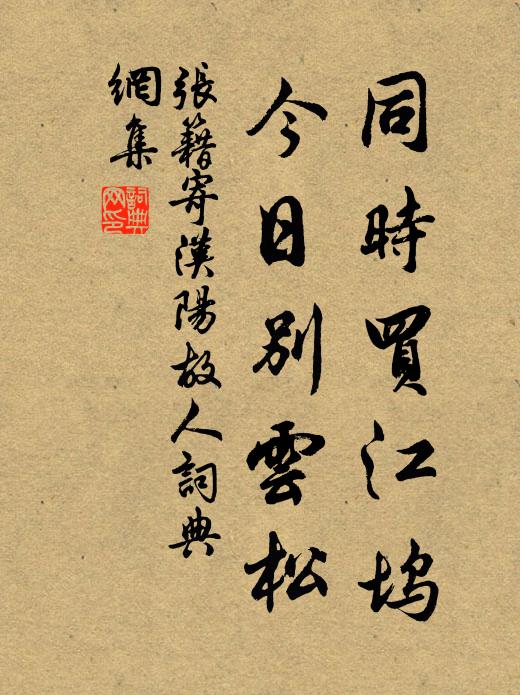 同時買江塢
今日別雲松
張籍寄漢陽故人詞典
網集
詞典網印